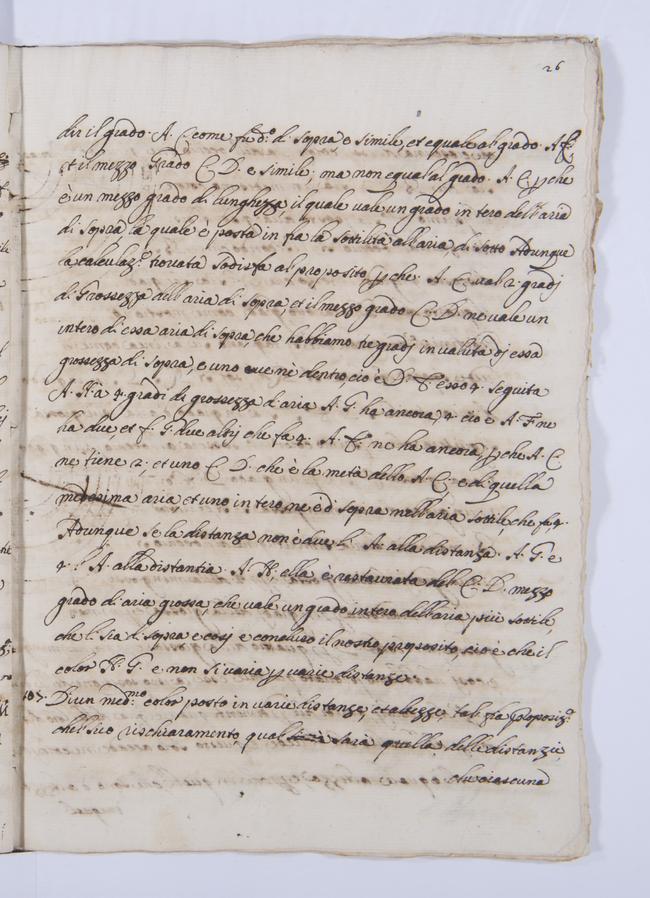 26
dir il grado. A. C. come fu d.º di sopra è simile, et equale al grado. A f.
et il mezzo Grado C. D. è simile; ma non equal al grado. A. C. p che
è un mezzo grado di lunghezza, il quale vale un grado intero dell'aria
di sopra la quale è posta in fra la sottilità all'aria, di sotto Adunque
la calculaz.e trovata sodisfa al proposito, p che. A. C. val 2. gradj
di Grossezza all'aria di sopra, et il mezzo grado C. D. ne vale un
intero di essa aria di sopra, che habbiamo tre gradj in valuta dj essa
grossezza di sopra, e uno ve n'è dentro, cioè D. f. esso 4. seguita
A. H. à 4. gradi di grossezza d'aria A. G. ha ancora, 4. cio è A. F. ne
ha due, et f. G. due altrj che fa 4. A. f. ne ha ancora, p che A. C
ne tiene 2; et uno C. D. che è la metà dello A. C. e di quella
medesima aria, et uno intero, ne è dì sopra nell'aria sottile, che fa 4.
Adunque se la distanza non è due l. A. alla distanza. A. G. e
4. l. A. alla distantia. A. H, ella è restaurata dell C. D. mezzo
grado di aria grossa, che vale un grado intero dell'aria più sottile,
che li sia di sopra e cosj è concluso il nostro proposito, cioè è che il
color H. G. e non si varia p varie distanze
107. Di un med.mo color posto in varie distanze, et altezze tal fia p loporsiz.e
chel suo rischiaramento qual sarà quella, delle distanzie,
che ciascuna